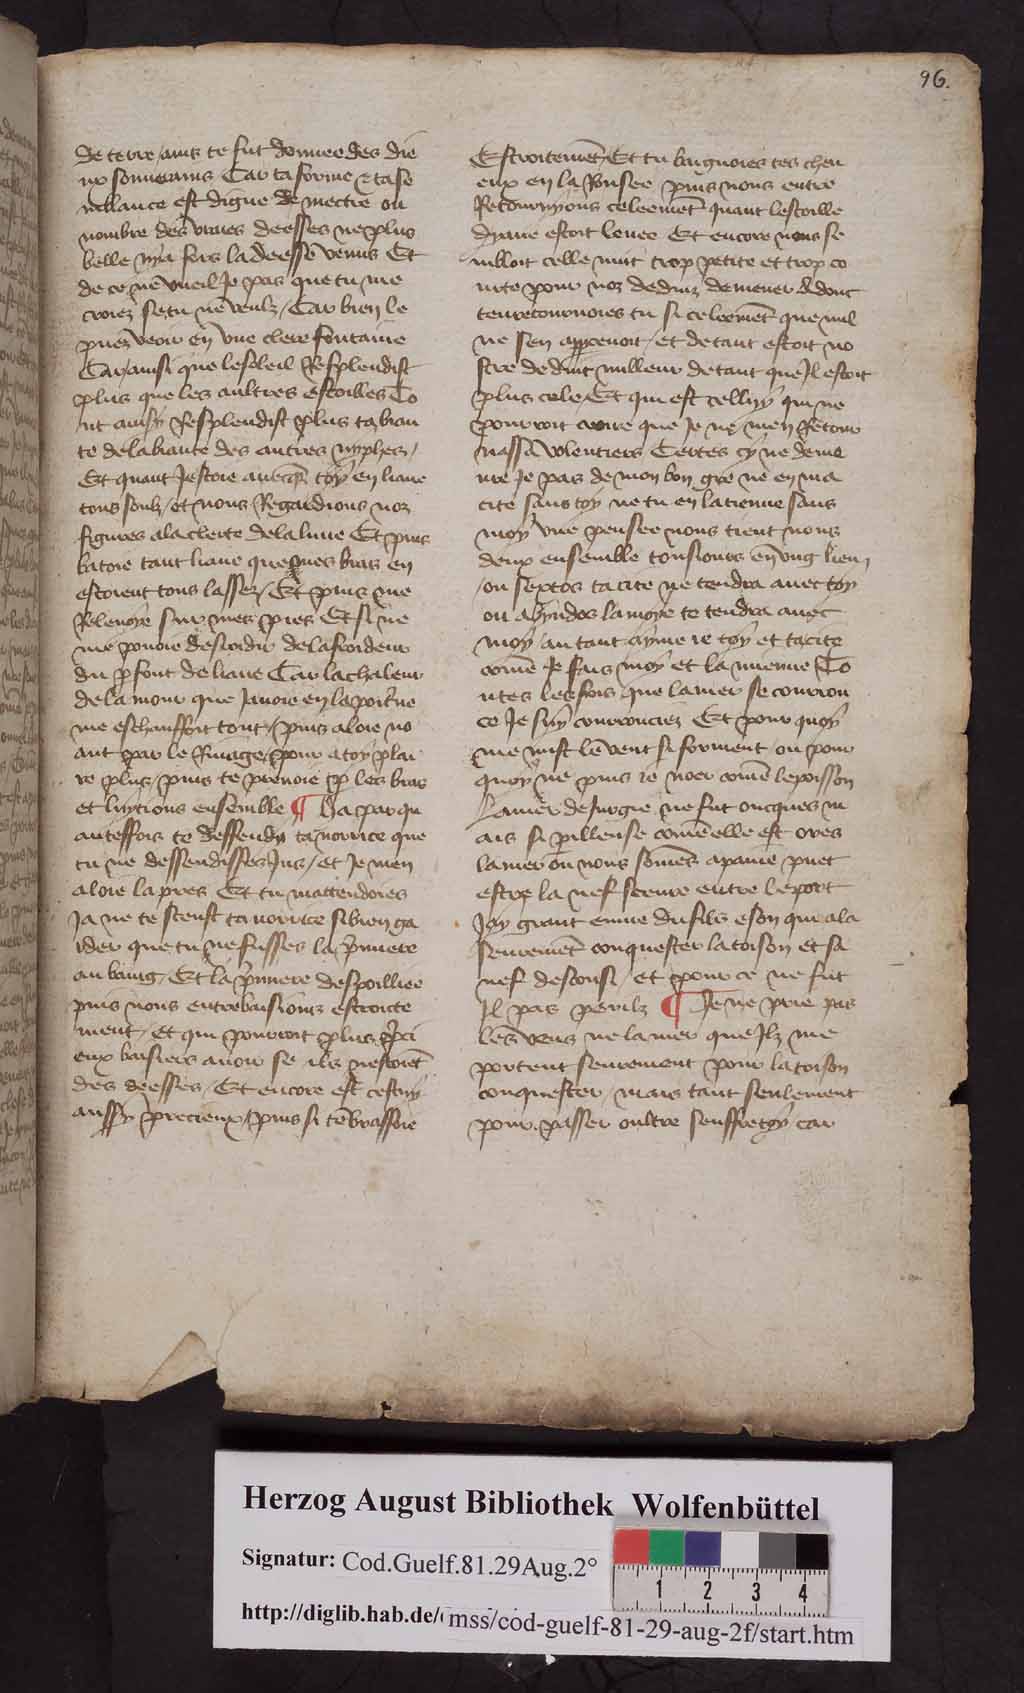 96.
de terre / ains te fut donnee des die
ux souuerains Car ta forme & ta se
mblance est digne de mectre ou
nombre des vraies deesses ne plus
belle nya fors la deesse venus Et
de ce ne vueil Je pas que tu me
croiez se tu ne veulz / Car bien le
puez veoir en vne clere fontaine
Car ainsi que le soleil Resplendist
plus que les aultres estoilles To
ut ainsy Resplendist plus ta biau
te de la biaute des autres nymphes /
Et quant Jestoie auecqs toy en liaue
tous seulz / et nous Regardions noz
figures a la clerte de la lune Et puis
batoie tant liaue que mes bras en
estoient tous lassez / Et puis me
Relenoye sur mes pies Et si ne
me pouoie de froidir de la froideur
du pfont de liaue Car la chaleur
de lamour que Jauoie en la poitrine
me eschauffoit tout / puis aloie no
ant par le Riuage / pour a toy plai
re plus / puis te prenoie p les bras
et luytions ensemble ¶ Ha par qu
anteffois te deffendy ta norrice que
tu ne dessendisses Jus / et Je men
aloie la pres Et tu mattendoies
Ja ne te sceust ta norrice si bien ga
rder que tu ne fusses la pmiere
au baing / Et la pmiere despoilliee
puis nous entrebaisions estroicte
ment / et qui pourroit plus preci
eux baisiers auoir se ilz nestoiet
des deesses / Et encore est cestuy
aussy precieux / puis si tebrassoie
Estroitemet / Et tu baignoies tes cheu
eux en la Rousee puis nous entre
Retournyons celeemet quant lestoille
dyane estoit leuee Et encore nous se
mbloit celle nuit trop petite et trop co
urte pour noz deduiz demener Adonc
ten retournoies tu si celeemet que nul
ne sen apperceuoit / et de tant estoit no
stre deduit milleur de tant que Il estoit
plus cele / Et qui est cellуy qui ne
pourroit croire que Je ne men Retour
nasse volentiers Certes cy ne deme
ure Je pas de mon bon gre ne en ma
cite sans toy ne tu en la tienne sans
moy vne pensee nous tient nous
deux ensemble tousiours en vng lieu
ou sextos ta cite ne tendra auec toy
ou abyndos la moye te tendra auec
moy / autant ayme ie toy et ta cite
come Je fais moy et la mienne To
utes les fois que la mer se courrou
ce Je suy courrouciez Et pour quoy
me nuist le vent si forment / ou pour
quoy ne puis ie noer come le poisson
La mer de surgie ne fut oncques m
ais si pilleuse come elle est ores
la mer ou nous somes apaine puet
estre la nef seeure entre le port
Jay grant enuie du fils eson qui ala
seurement conquester la toison et sa
nef descousi / et pour ce ne fut
Il pas perilz ¶ Je ne prie pas
les vens ne la mer que Ilz me
portent seurement pour la toison
conquester / mais tant seulement
pour passer oultre seuffre toy car
Herzog August Bibliothek Wolfenbüttel
Signatur: Cod.Guelf.81.29Aug.2°
1 2 3 4
http://diglib.hab.de/
mss/cod-guelf-81-29-aug-2f/start.htm